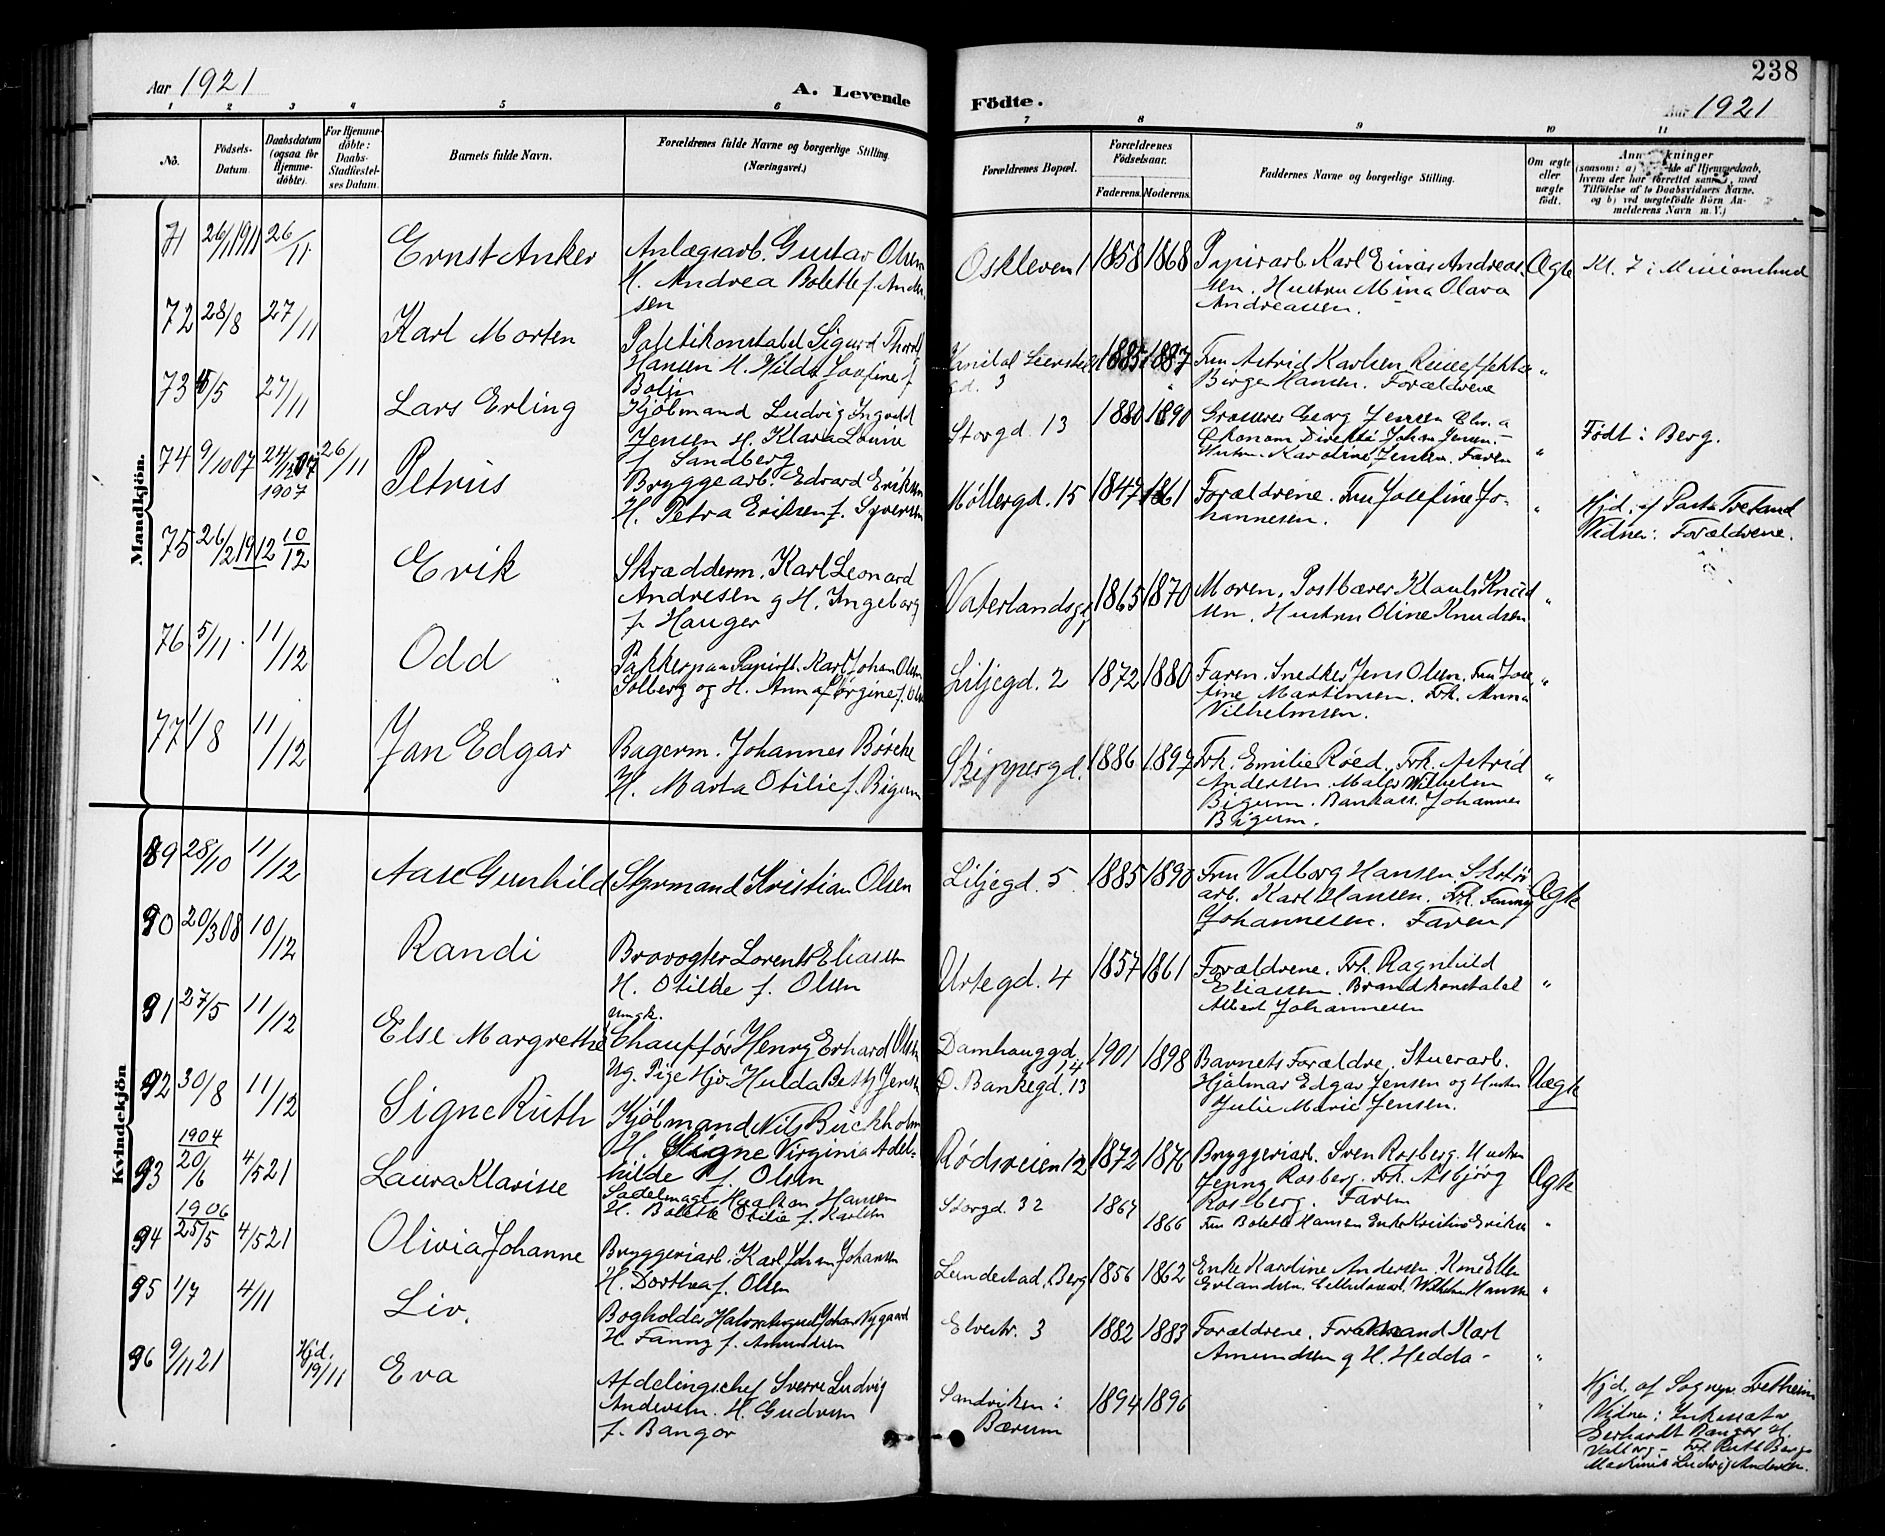 238
Aar 1921
A. Levende
Födte.
Aar 1921
1 2 3 4 5 6 7 8 9 10 11
No.
Födsels-
Datum.
Daabsdatum
(ogsaa for
Hjemme-
døbte).
For Hjemme-
döbte:
Daabs-
Stadfæstel-
ses Datum.
Barnets fulde Navn.
Forældrenes fulde Navne og borgerlige Stilling.
(Næringsvei.)
Forældrenes Bopæl.
Forældrenes
Födselsaar.
Faderens. Moderens.
Faddernes Navne og borgerlige Stilling.
Om ægte
eller
uægte
födt.
(saasom: a) af Hjemmedaab,
hvem der har forrettet samme, med
Tilföielse af to Daabsvidners Navne.
og b) ved uægtefödte Börn An-
melderens Navn m. V.)
Mandkjön.
71 26/1 1911 26/11 Ernst Anker
Anlægsarb. Gustav Olsen
H. Andrea Bolette f. Ander-
sen
Oskleven 1 1858 1868
Papirarb. Karl Einar Andreas-
sen. Hustru Mina Olava
Andreassen.
Ægte
Kl. 7 i Missionshus
72 28/8 27/11 Karl Morten
Politikonstabel Sigurd
Hansen H. Hilda Josefine f.
gd. 3 1885 1887
Fru Astrid Karlsen
Birger Hansen. Forældrene
"
73 5/5 27/11 Lars Erling
Kjøbmand Ludvig Ingvald
Jensen H. Klara Lovise
f. Sandberg
Storgd. 13 1880 1890
Grosserer Georg Jensen
Økonom Direktør Johan Jensen.-
Hustru Karoline Jensen. Faren
"
Født i Berg.
74 9/10 07 24/12 07 26/11 Petrus
1907
Bryggearb. Edvard Eriksen
H. Petra Eriksen f. Syversen
Møllergd. 15 1847 1861
Forældrene. Fru Josefine Jo-
hannesen.
"
Hjd. af Pastor Tveland
Vidner: Forældrene.
75 26/2 1912 10/12 Erik
Skrædderm. Karl Leonard
Andresen og H. Ingeborg
f. Hauger
Vaterlandsgd. 1865 1870
Moren. Postbærer Klaus Knud-
sen. Hustru Oline Knudsen
"
76 5/11 11/12 Odd
Pakker paa Papirf. Karl Johan Olsen
Solberg og H. Anna Jørgine f. Ols
Liljegd. 2 1872 1880
Faren. Snedker Jens Olsen. Fru Jose-
fine Martinsen. Frk. Anna
Vilhelmsen.
"
77 1/8 11/12 Jan Edgar
Bagerm. Johannes Børcke
H. Marta Otilie f. Bigum
Skippergd. 1886 1897
Frk. Emilie Røed. Frk. Astrid
Andersen. Maler Wilhelm
Bigum. Bankass. Johannes
Bigum.
"
Kvindekjön
89 28/10 11/12 Aase Gunhild
Styrmand Kristian Olsen
Liljegd. 5 1885 1890
Fru Valborg Hansen Skotøi-
arb. Karl Hansen. Frk. Fanny
Johannesen. Faren
Ægte
90 20/3 08 10/12 Randi
Brovogter Lorents Eliassen
H. Otilde f. Olsen
Urtegd. 4 1857 1861
Forældrene. Frk. Ragnhild
Eliassen. Brandkonstabel
Albert Johannesen
"
91 27/5 11/12 Else Margrethe
Ungk.
Chauffør Henry Erhard Olsen
Ug. Pige Hjv. Hulda Betsy Jensen
Damhauggd. 14
O. Bankegd. 13
1901 1898
Barnets Forældre. Stuerarb.
Hjalmar Edgar Jensen og Hustru
Julie Marie Jensen.
Uægte
92 30/8 11/12 Signe Ruth
Kjøbmand Nils Buckholm
H. Signe Virginia Adel-
hilde f. Olsen
Rødsveien 12 1872 1876
Bryggeriarb. Sven Rosberg. Hustru
Jenny Rosberg. Frk. Asbjørg
Rosberg. Faren
Ægte
93 1904 20/6 4/5 21 Laura Klarisse
Sadelmager Haakon Hansen
H. Bolette Otilie f. Karlsen
Storgd. 32 1867 1866
Fru Bolette Hansen Enke Kristine Eriksen
"
94 1906 25/5 4/5 21 Olivia Johanne
Bryggeriarb. Karl Johan Johansen
H. Dorthea f. Olsen
Lundestad, Berg 1856 1862
Enke Karoline Andersen. Kone Ellen
Erlandsen. Wilhelm Hansen
"
95 1/7 4/11 Liv.
Bogholder Johan Nygaard
H. Fanny f. Amundsen
Elvestr. 3 1882 1883
Forældrene. Formand Karl
Amundsen og H. Hedda -
"
96 9/11 21 Hjd. 19/11 Eva
Afdelingschef Sverre Ludvig
Andersen. H. Gudrun
f. Bangor
Sandviken i
Bærum
1894 1896
"
Hjd. af Sognepr. Fretheim
Vidner: Inkassator
Gerhardt Bangor H.
Valborg - Frk. Ruth Berge
Maskinist Ludvig Andersen.